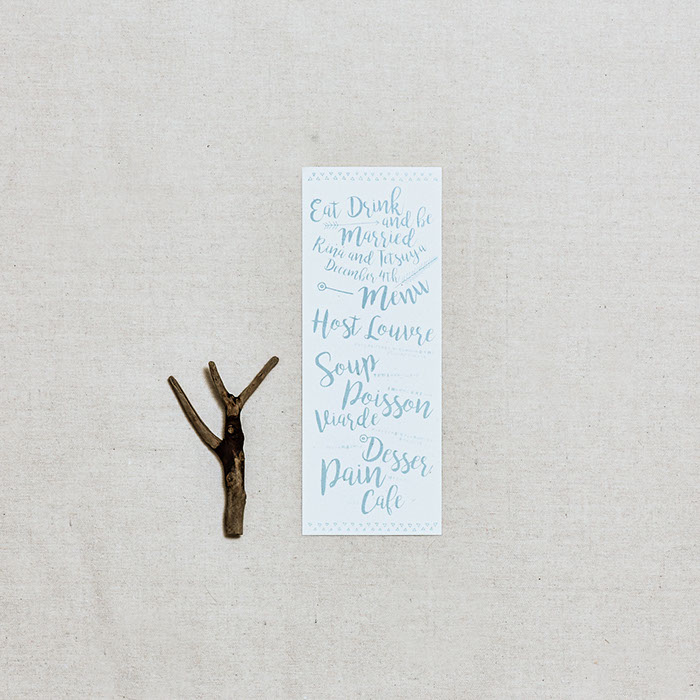 Eat Drink
and be
Married
Rina and Tetsuya
December 4th
Menu
Host Louvre
Soup
Poisson
Viarde
Desser
Pain
Cafe